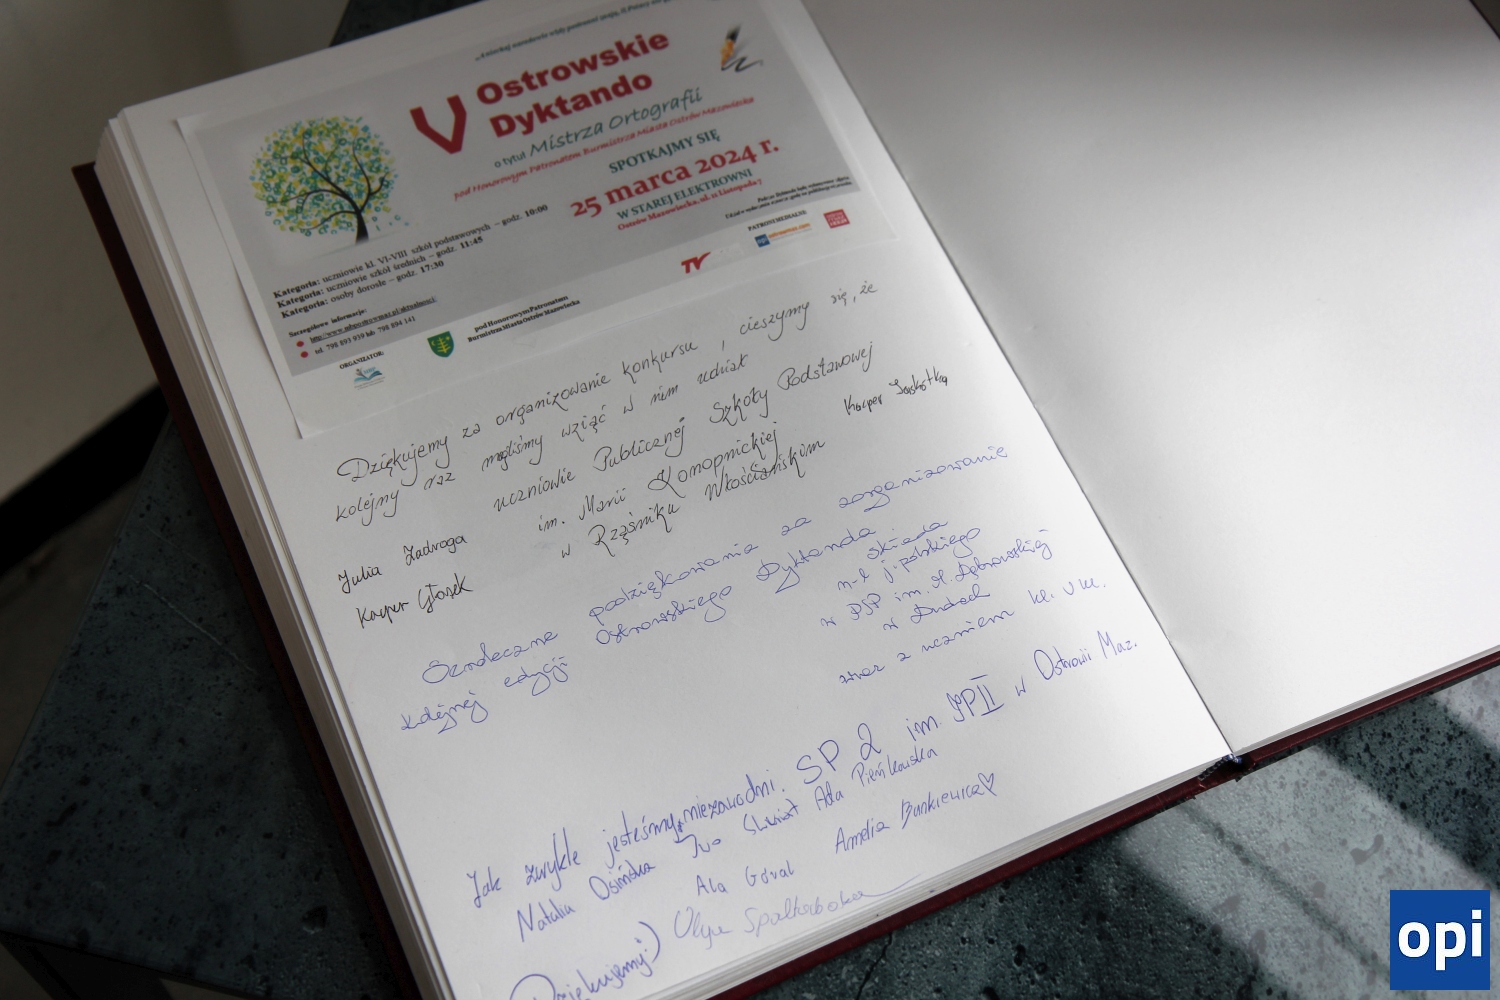 V Ostrowskie
Dyktando
o tytuł Mistrza Ortografii
pod Honorowym Patronatem Burmistrza Miasta Ostrów Mazowiecka
SPOTKAJMY SIĘ
25 marca 2024 r.
W STAREJ ELEKTROWNI
Ostrów Mazowiecka, ul. 11 Listopada 7
Kategoria: uczniowie kl. VI-VIII szkół podstawowych – godz. 10:00
Kategoria: uczniowie szkół średnich – godz. 11:45
Kategoria: osoby dorosłe – godz. 17:30
Szczegółowe informacje:
tel. 798 893 939 lub 798 894 141
ORGANIZATOR:
pod Honorowym Patronatem
Burmistrza Miasta Ostrów Mazowiecka
PATRONI MEDIALNI:
TV
opi
Dziękujemy za organizowanie konkursu, cieszymy się, że
kolejny raz mogliśmy wziąć w nim udział
uczniowie Publicznej Szkoły Podstawowej
im. Marii Konopnickiej
w Rząśniku Włościańskim
Julia Zadroga
Kacper Głasek
Kacper
Serdeczne podziękowania za zorganizowanie
kolejnej edycji Ostrowskiego Dyktanda
składa
n-l j. polskiego
w PSP im. H. Dąbrowskiej
w Dudach
wraz z uczniem kl. VIII.
Jak zwykle jesteśmy niezawodni. SP 2 im. JPII w Ostrowii Maz.
Natalia Osińska Ivo Ala Pieńkowska
Ala Góral Amelia Bankiewicz
Dziękujemy:)
opi